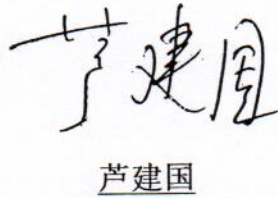 芦建国
芦建国